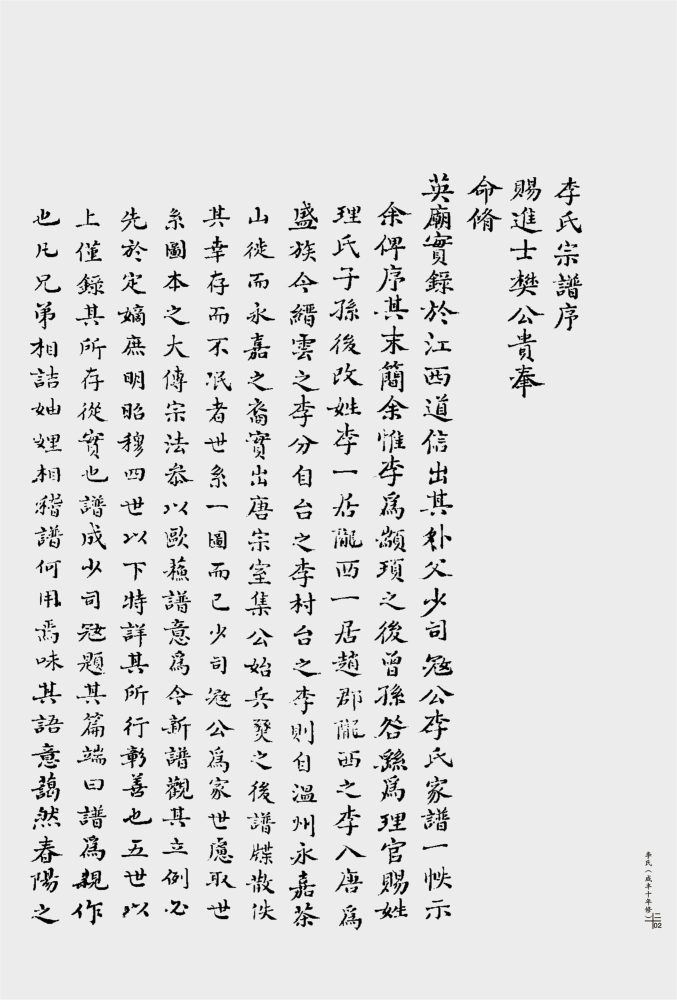 李氏宗譜序
賜進士樊公貴奉
命脩
英廟實錄於江西道信出其外父少司寇公李氏家譜一帙示
余俾序其末簡余惟李爲顓頊之後曾孫咎繇爲理官賜姓
理氏子孫後改姓李一居隴西一居趙郡隴西之李入唐爲
盛族今縉雲之李分自台之李村台之李則自溫州永嘉茶
山徙而永嘉之裔實出唐宗室集公始兵燹之後譜牒散佚
其幸存而不泯者世系一圖而已少司寇公爲家世慮取世
系圖本之大傳宗法叅以歐蘓譜意爲今新譜觀其立例必
先於定嫡庶明昭穆四世以下特詳其所行彰善也五世以
上僅錄其所存從實也譜成少司寇題其篇端曰譜爲親作
也凡兄弟相詰妯娌相稽譜何用焉味其語意藹然春陽之
李氏（咸丰十年修）
二
02